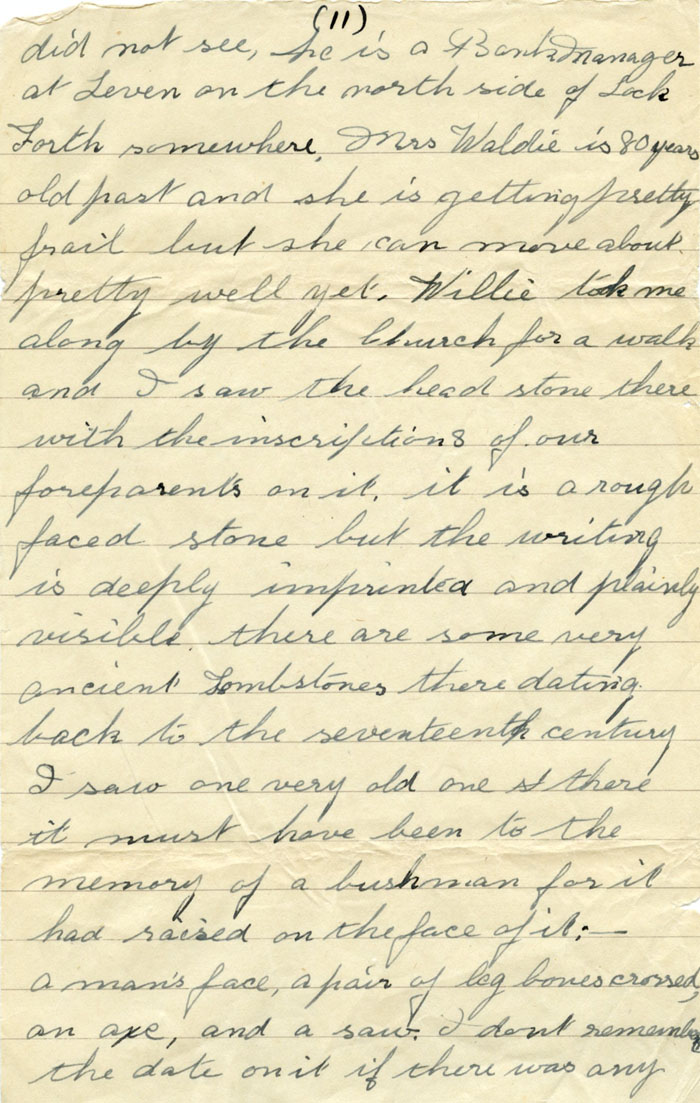 (11)
did not see, he is a Bank Manager
at Leven on the north side of Lock
Forth somewhere, Mrs Waldie is 80 years
old past and she is getting pretty
frail but she can move about
pretty well yet. Willie took me
along by the Church for a walk
and I saw the head stone there
with the inscriptions of our
foreparents on it. it is a rough
faced stone but the writing
is deeply imprinted and plainly
visible. there are some very
ancient Tombstones there dating
back to the seventeenth century
I saw one very old one there
it must have been to the
memory of a bushman for it
had raised on the face of it:—
a man's face, a pair of leg bones crossed,
an axe, and a saw. I dont remember
the date on it if there was any